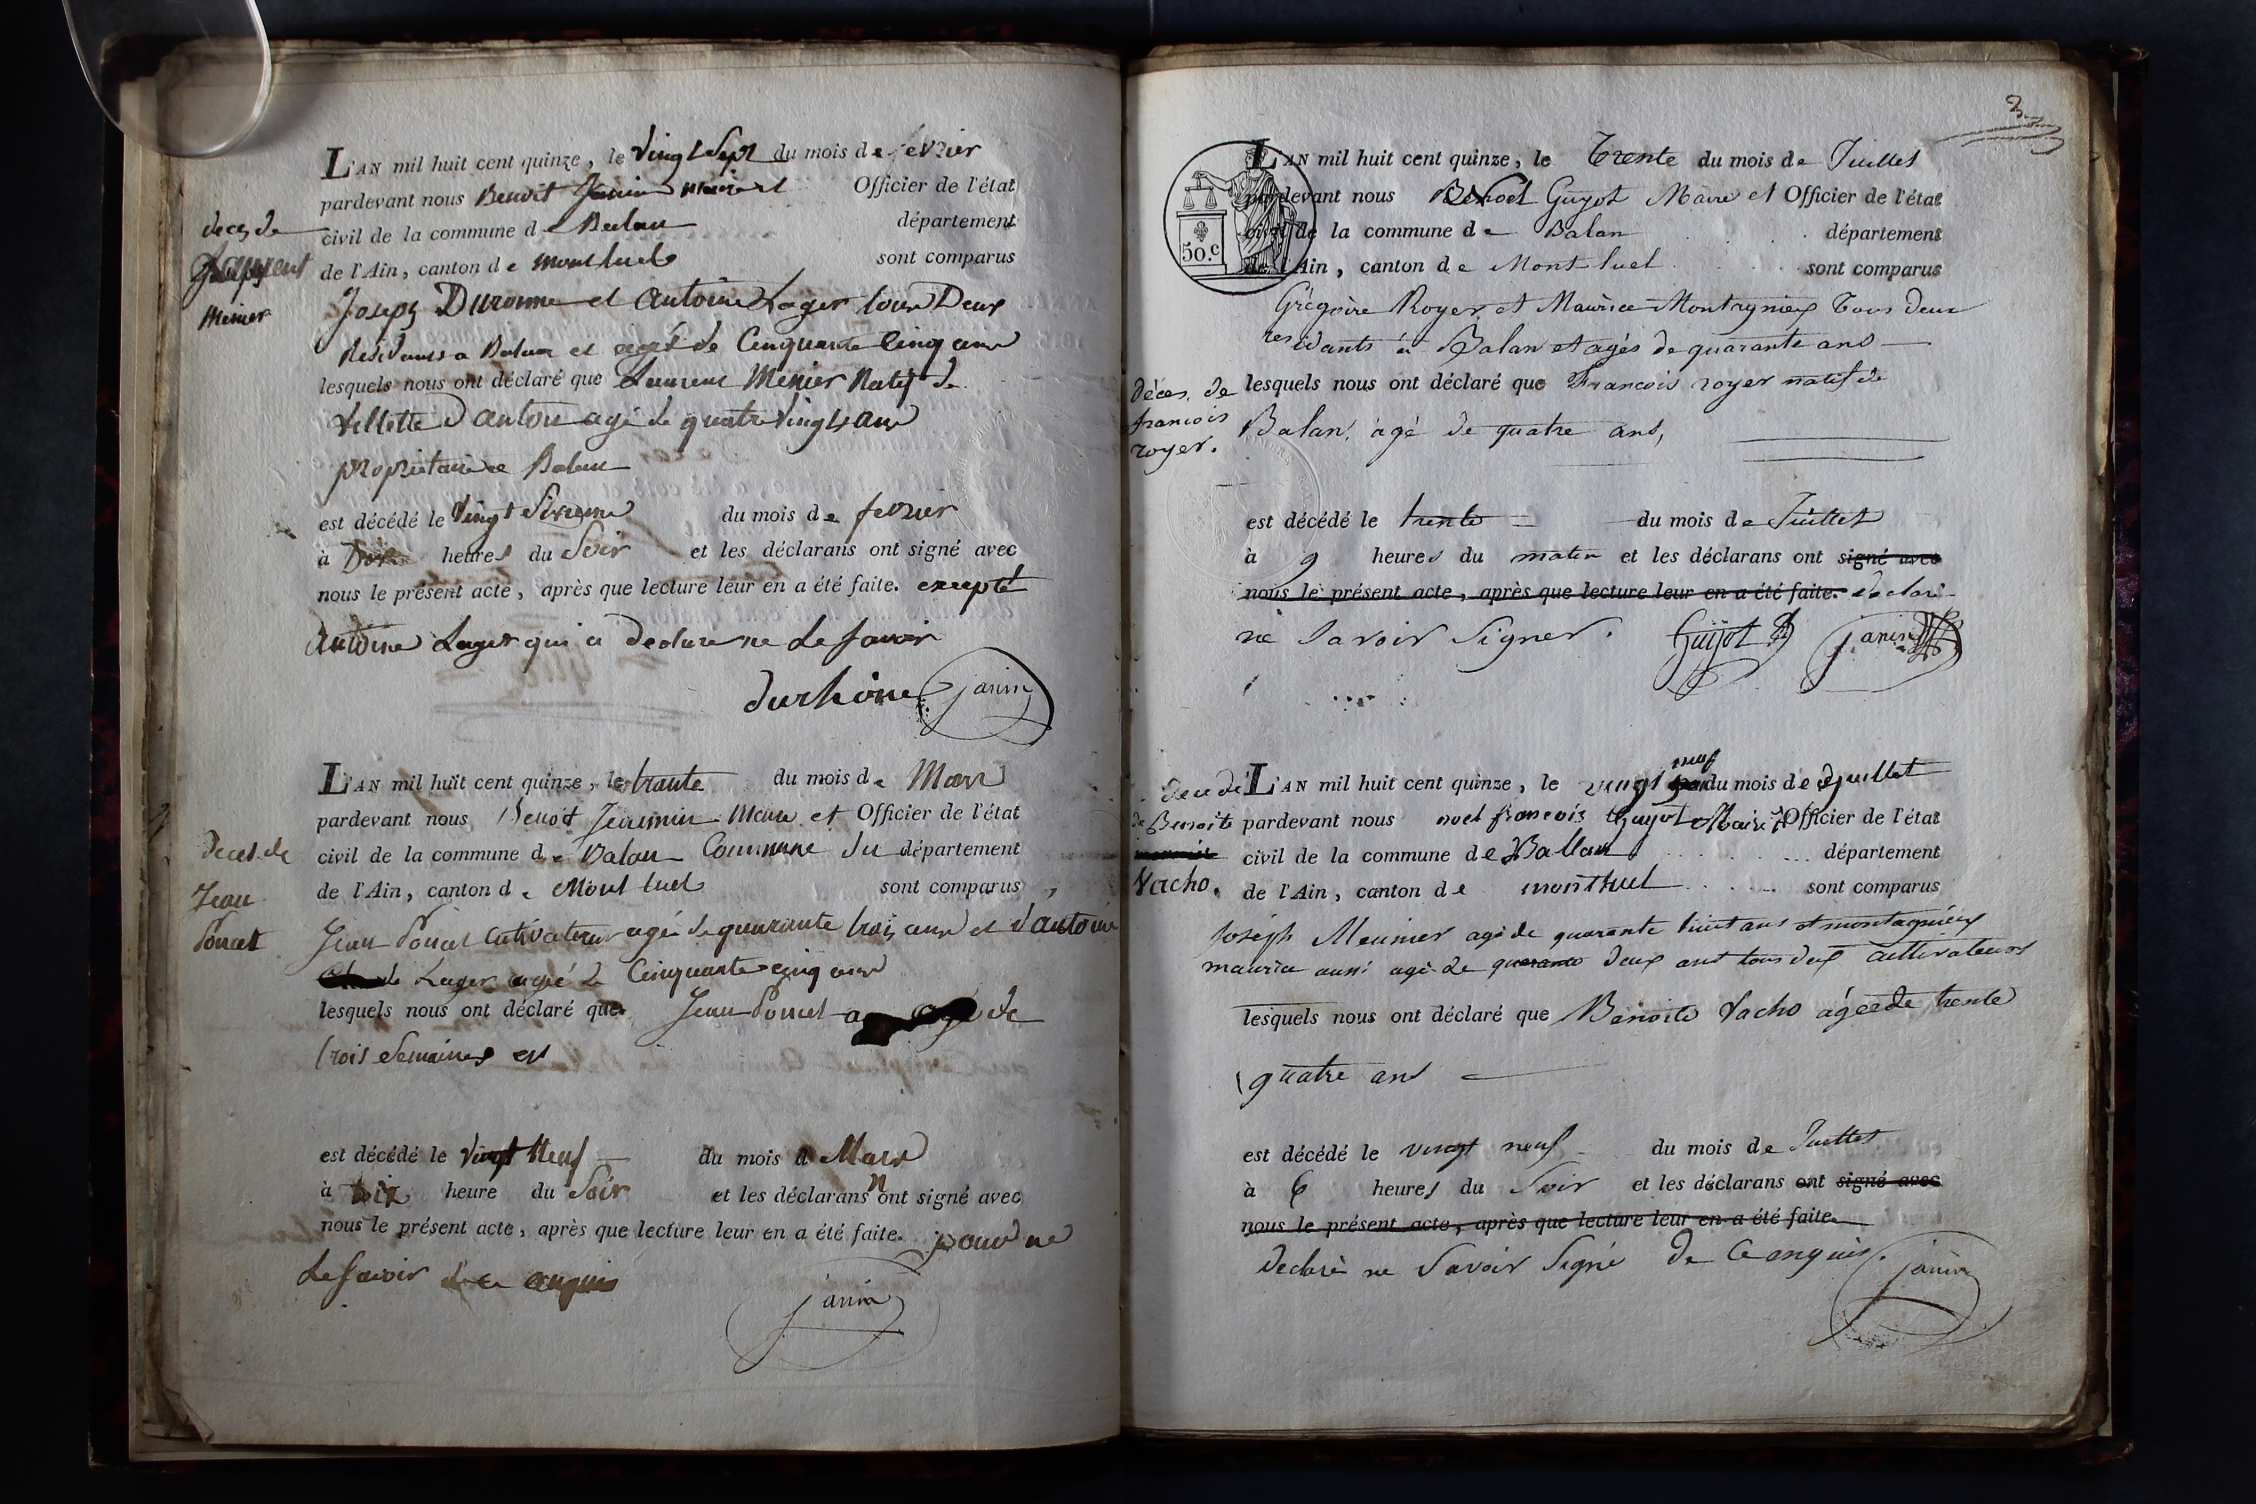 L'AN mil huit cent quinze, le vingt Sept du mois de fevrier
pardevant nous Benoit Janin Officier de l'état
civil de la commune de Balan département
de l'Ain, canton de montluel sont comparus
Joseph Duronne et Antoine Lager tous Deux
Residants a Balan et agés de Cinquante Cinq ans
lesquels nous ont déclaré que Laurent Menier Natif de
Villette D'anton agé de quatre Vingts ans
proprietaire a Balan
est décédé le Vingt Sixieme du mois de fevrier
à heures du Soir et les déclarans ont signé avec
nous le présent acte, après que lecture leur en a été faite. excepté
Antoine Lager qui a Declare ne Le savoir
durhône janin
deces de
Laurent
Menier
L'AN mil huit cent quinze, le trante du mois de Mars
pardevant nous Benoit Maire et Officier de l'état
civil de la commune de Balan Commune du département
de l'Ain, canton de Montluel sont comparus
Jean Poncet Cultivateur agé de quarante trois ans et d'antoine
Lager agé de Cinquante cinq ans
lesquels nous ont déclaré que Jean Poncet agé de
trois Semaines est
est décédé le Vingt Neuf du mois de Mars
à dix heure du Soir et les déclarans n'ont signé avec
nous le présent acte, après que lecture leur en a été faite. pour ne
Le savoir de ce enquis
janin
deces de
Jean
Poncet
3
50.c
L'AN mil huit cent quinze, le Trente du mois de Juillet
pardevant nous Guyot Maire et Officier de l'état
civil de la commune de Balan département
de l'Ain, canton de Mont-luel sont comparus
Grégoire Royer et Maurice Montagnieux Tous deux
residants à Balan et agés de quarante ans
lesquels nous ont déclaré que Francois royer natif de
Balan, agé de quatre ans,
est décédé le trente du mois de Juillet
à 9 heures du matin et les déclarans ont signé avec
nous le présent acte, après que lecture leur en a été faite. déclaré
ne Savoir Signer. Guijot janin
décès de
francois
royer.
L'AN mil huit cent quinze, le vingt neuf du mois de Juillet
pardevant nous noel francois Guyot Maire et Officier de l'état
civil de la commune de Ballan département
de l'Ain, canton de montluel sont comparus
Joseph Meunier agé de quarante huit ans et montagnieux
maurice aussi agé de quarante deux ans tous deux cultivateurs
lesquels nous ont déclaré que Benoite Vacho agée de trente
quatre ans
est décédé le vingt neuf du mois de Juillet
à 6 heures du Soir et les déclarans ont signé avec
nous le présent acte, après que lecture leur en a été faite.
declaré ne Savoir Signé de Ce enquis. janin
de Benoite
Vacho.